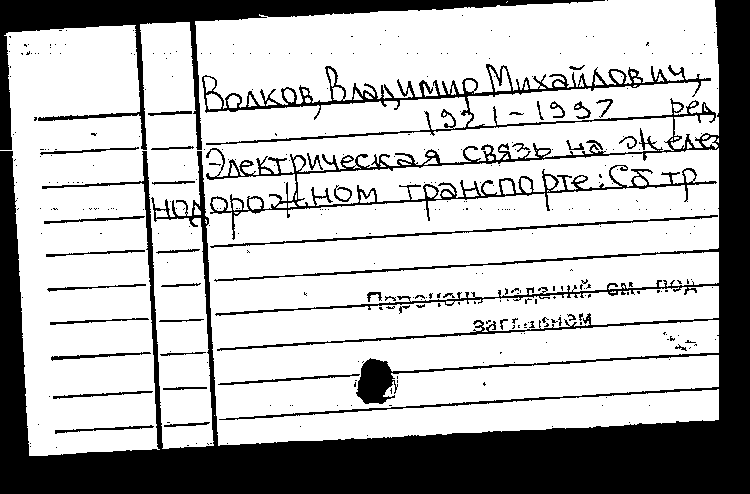 Волков, Владимир Михайлович,
1921-1997 ред.
Электрическая связь на желез
нодорожном транспорте: Сб. тр
Перечень изданий см. под
заглавием